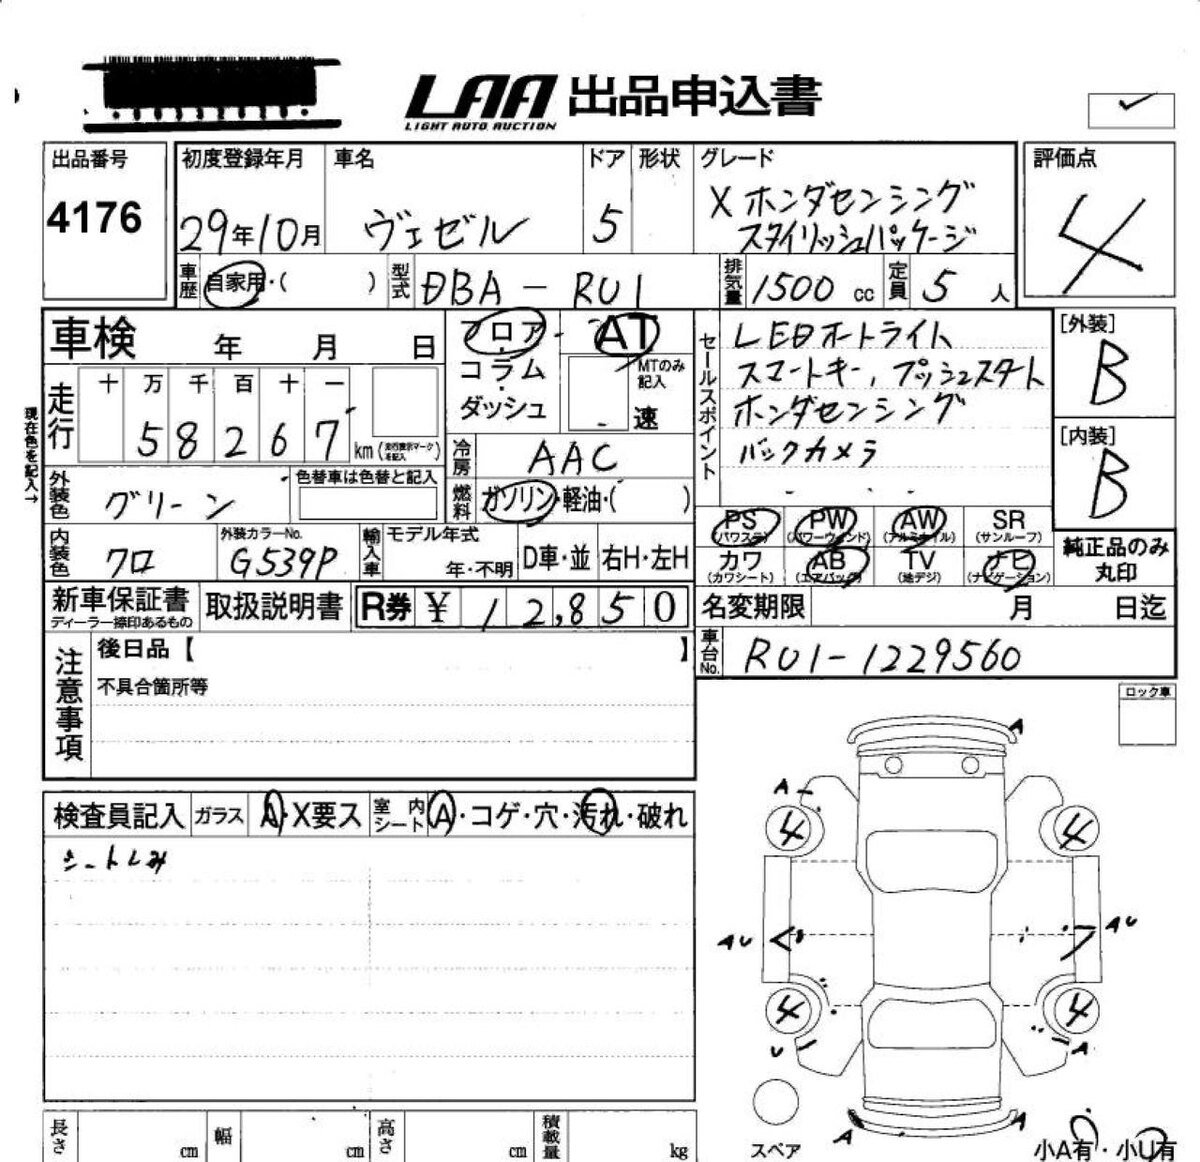 LAA 出品申込書
LIGHT AUTO AUCTION
出品番号
4176
初度登録年月
29年10月
車名
ヴェゼル
ドア
5
形状
グレード
X ホンダセンシング
スタイリッシュパッケージ
評価点
4
車歴
自家用・( )
型式
DBA-RU1
排気量
1500 cc
定員
5 人
車検 年 月 日
走行
十 万 千 百 十 一
5 8 2 6 7
km (走行表示マークを記入)
現在色を記入→
フロア・
コラム・
ダッシュ
AT
MTのみ記入
速
冷房
AAC
燃料
ガソリン・軽油・( )
セールスポイント
LEDオートライト
スマートキー, プッシュスタート
ホンダセンシング
バックカメラ
[外装]
B
[内装]
B
外装色
グリーン
色替車は色替と記入
内装色
クロ
外装カラーNo.
G539P
輸入車
モデル年式
年・不明
D車・並
右H・左H
PS (パワステ)
PW (パワーウィンド)
AW (アルミホイル)
SR (サンルーフ)
カワ (カワシート)
AB (エアバッグ)
TV (地デジ)
ナビ (ナビゲーション)
純正品のみ丸印
新車保証書
ディーラー捺印あるもの
取扱説明書
R券 ¥ 12,850
名変期限 月 日迄
車台No.
RU1-1229560
注意事項
後日品【 】
不具合箇所等
ロック車
検査員記入
ガラス
A・X要ス
室内シート
A・コゲ・穴・汚れ・破れ
シートしみ
A
A
4
4
AU
AU
4
4
U
A
A
A
スペア
小A有・小U有
長さ cm
幅 cm
高さ cm
積載量 kg